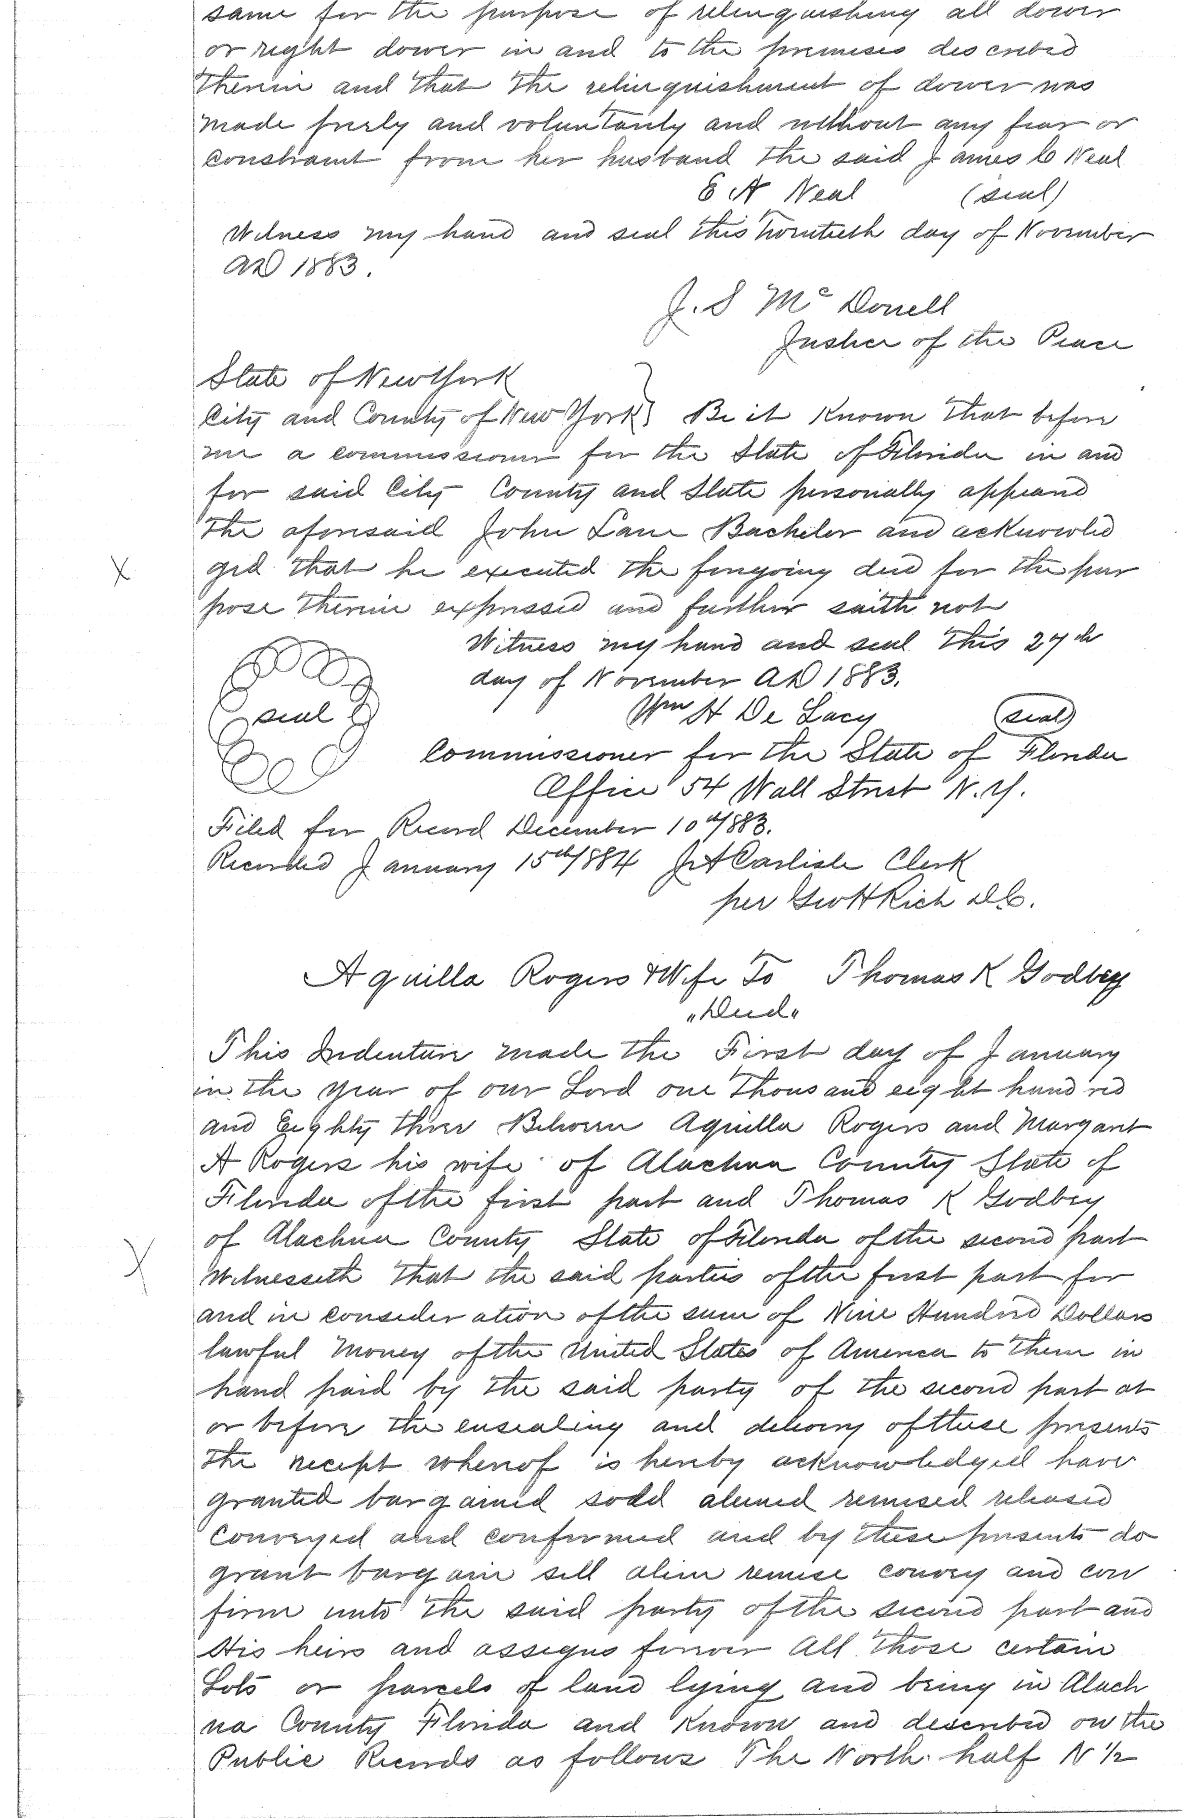 same for the purpose of relinquishing all dower
or right dower in and to the premises described
therein and that the relinquishment of dower was
made freely and voluntarily and without any fear or
constraint from her husband the said James C Neal
E A Neal (seal)
Witness my hand and seal this Twentieth day of November
AD 1883.
J. S McDonell
Justice of the Peace
State of New York
City and County of New York } Be it Known that before
me a commissioner for the State of Florida in and
for said City County and State personally appeared
the aforesaid John Lane Bachelor and acknowled
ged that he executed the foregoing deed for the pur
pose therein expressed and further saith not
Witness my hand and seal this 27th
day of November AD 1883.
seal
Wm H De Lacy (seal)
Commissioner for the State of Florida
Office 54 Wall Street N.Y.
Filed for Record December 10th/883.
Recorded January 15th/884 J A Carlisle Clerk
per Geo H Rich D.C.
Aquilla Rogers & Wife To Thomas K Godbey
"Deed"
This Indenture made the First day of January
in the year of our Lord one thousand eight hundred
and Eighty three Between Aquilla Rogers and Margaret
A Rogers his wife of Alachua County State of
Florida of the first part and Thomas K Godbey
of Alachua County State of Florida of the second part
X
X
Witnesseth that the said parties of the first part for
and in consideration of the sum of Nine Hundred Dollars
lawful Money of the United States of America to them in
hand paid by the said party of the second part at
or before the ensealing and delivery of these presents
the receipt whereof is hereby acknowledged have
granted bargained sodd aliened remised released
conveyed and confirmed and by these presents do
grant bargain sell alien remise convey and con
firm unto the said party of the second part and
His heirs and assigns forever All those certain
Lots or parcels of land lying and being in Alach
ua County Florida and Known and described on the
Public Records as follows The North half N 1/2